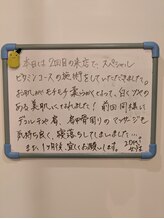 本日は2回目の来店で、スペシャル
ビタミンコースの施術をしていただきました。
お肌がモチモチ柔らかくなって、白くツヤの
ある美肌にしてくれました！前回同様に
デコルテや肩、肩甲骨周りのマッサージも
気持ち良くて、寝落ちしてしまいました…。
また1ヶ月後、宜しくお願いします。